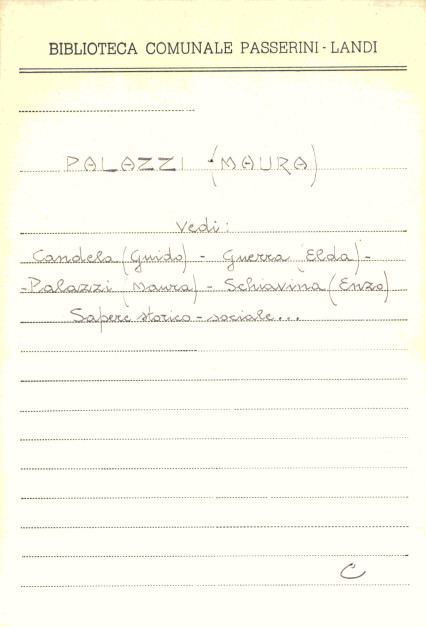 BIBLIOTECA COMUNALE PASSERINI - LANDI
PALAZZI (MAURA)
Vedi:
Candela (Guido) - Guerra (Elda) -
- Palazzi (Maura) - Schiavina (Enzo)
Sapere storico - sociale...
C